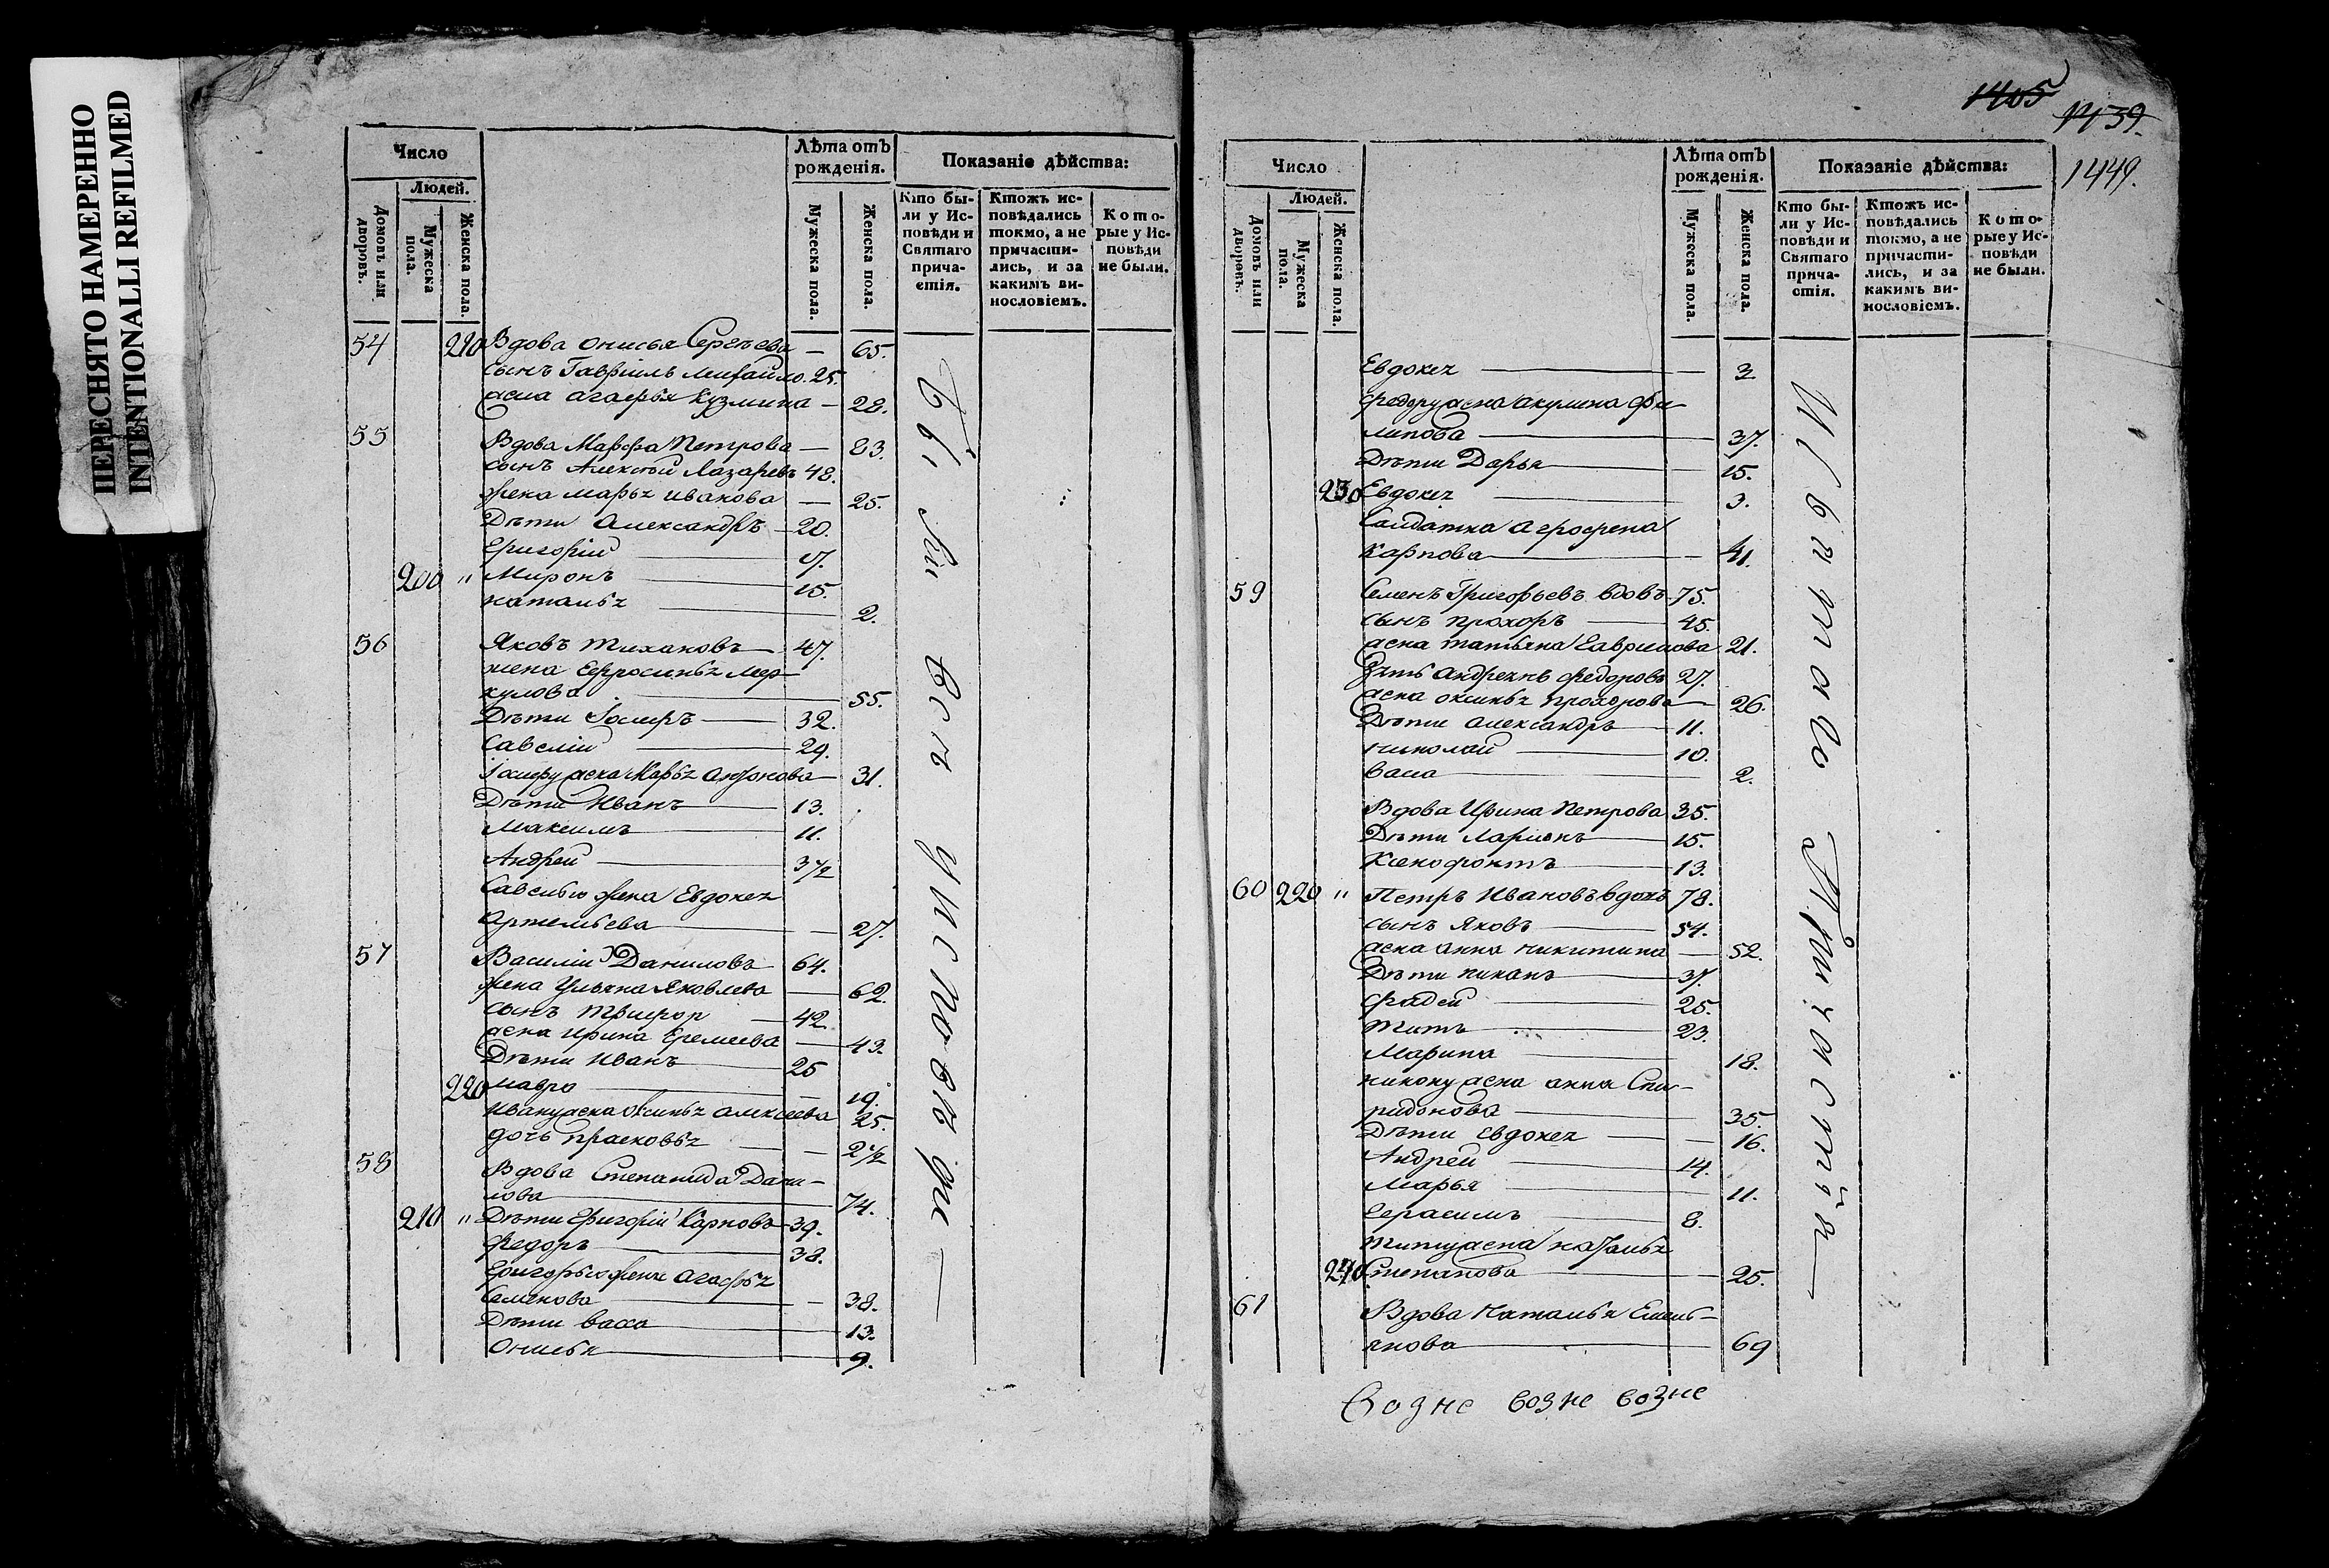 ПЕРЕСНЯТО НАМЕРЕННО
INTENTIONALLI REFILMED
Число
Людей.
Домовъ или дворовъ.
Мужеска пола.
Женска пола.
Лѣта отъ рожденія.
Мужеска пола.
Женска пола.
Показаніе дѣйства:
Кто бы-
ли у Ис-
повѣди и
Святаго
прича-
стія.
Ктожъ ис-
повѣдались
токмо, а не
причасти-
лись, и за
какимъ ви-
нословіемъ.
Кото-
рые у Ис-
повѣди
не были.
54 210 Вдова Онисья Сергеева — 65.
сынъ Гавріилъ Михайло. 25.
жена Агафья Кузмина — 28.
55 Вдова Марфа Петрова — 83.
сынъ Алексѣй Лазаревъ 48.
жена Марья Иванова — 25.
Дѣти Александръ — 20.
Григорій 17.
200 " Миронъ 15.
Наталья 2.
56 Яковъ Тихановъ — 47.
жена Ефросинья Мер-
кулова 55.
Дѣти Іосифъ — 32.
Савелій 29.
Іосифу жена Марья Антонова — 31.
Дѣти Иванъ 13.
Максимъ 11.
Андрей 3 1/2
Савелью жена Евдокея
Артемьева 27.
57 Василій Даниловъ 64.
жена Ульяна Яковлева 62.
сынъ Трифон — 42
жена Ирина Еремеева — 43.
Дѣти Иванъ 25
220 Мавра 19.
Ивану жена Оксинья Алексеева 25.
дочь Прасковья — 2 1/2
58 Вдова Степанида Дани-
лова 74.
210 " Дѣти Григорій Карповъ 39.
Федоръ 38.
Григорью жена Агафья
Семенова — 38.
Дѣти Васса 13.
Онисья 9.
Были Всѣ у исповѣди —
1405
1439.
1449.
Число
Людей.
Домовъ или дворовъ.
Мужеска пола.
Женска пола.
Лѣта отъ рожденія.
Мужеска пола.
Женска пола.
Показаніе дѣйства:
Кто бы-
ли у Ис-
повѣди и
Святаго
прича-
стія.
Ктожъ ис-
повѣдались
токмо, а не
причасти-
лись, и за
какимъ ви-
нословіемъ.
Кото-
рые у Ис-
повѣди
не были.
Евдокея — 3
Федору жена Акулина Фи-
липова 37.
Дѣти Дарья 15.
230 Евдокея 3.
Салдатка Агрофена
Карпова — 41.
59 Семенъ Григорьевъ вдовъ 75.
сынъ Прохоръ — 45.
жена Татьяна Гаврилова 21.
Зять Андреянъ Федоровъ 27.
жена Оксинья Прохорова 26.
Дѣти Александръ 11.
Николай 10.
Васса 2.
Вдова Ирина Петрова 35.
Дѣти Ларионъ 15.
Ксенофонтъ 13.
60 220 " Петръ Ивановъ вдовъ 78.
сынъ Яковъ 54.
жена Анна Никитина — 52.
Дѣти Никанъ 37.
Фадей 25.
Титъ 23.
Марина 18.
Никону жена Анна Спи-
ридонова 35.
Дѣти Евдокея — 16.
Андрей 14.
Марья 11.
Герасимъ 8.
Титу жена Наталья
240 Степанова 25.
61 Вдова Наталья Емель-
янова 69
И Святаго Причастія —
Возне возне возне